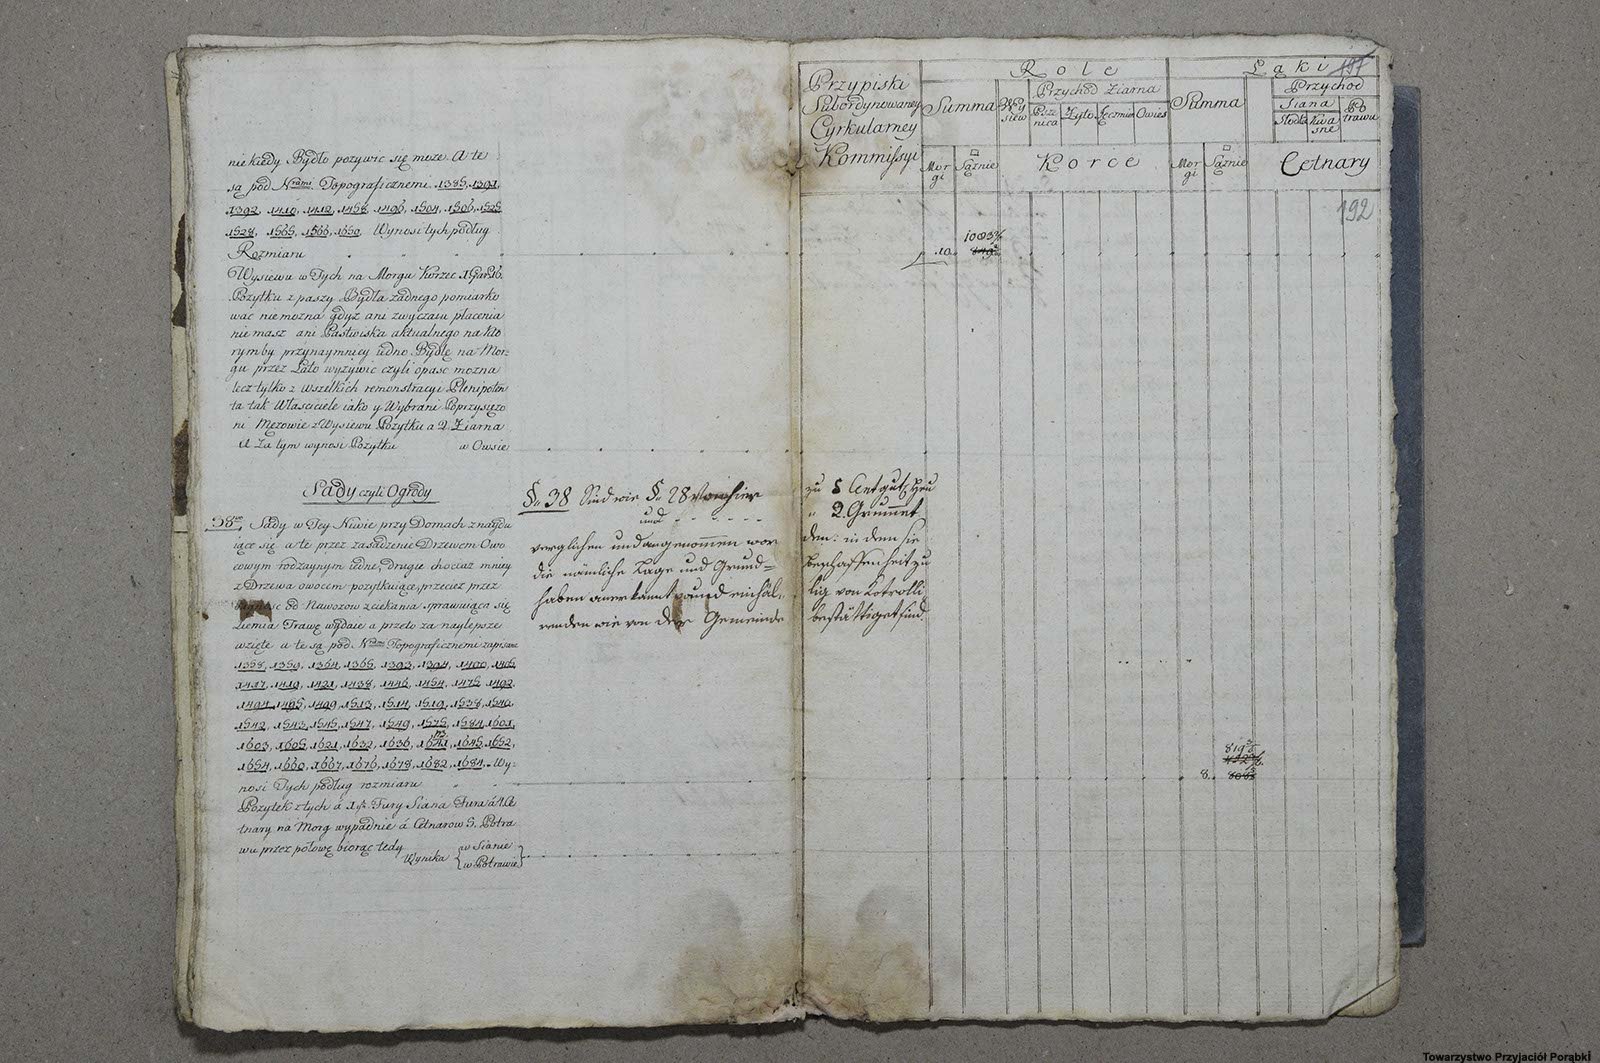 niekiedy Bydło pozywic się może. A te
są pod Nrami Topograficznemi 1385, 1391,
1392, 1410, 1412, 1458, 1496, 1504, 1506, 1525
1528, 1565, 1566, 1650. Wynosi tych podług
Rozmiaru
Wysiewu w Tych na Morgu Korzec 1 Gar: 16.
Pozytku z paszy Bydła zadnego pomiarko
wac nie mozna gdyz ani zwyczaiu płacenia
nie masz ani Pastwiska aktualnego na któ
rymby przynaymniey iedno Bydle na Mor:
gu przez Lato wyzywic czyli opasc mozna
lecz tylko z wszelkich remonstracyi Plenipoten
ta tak Własciciele iako y Wybrani Poprzysięzo
ni Męzowie z Wysiewu Pozytku a 2 Ziarna
A Za tym wynosi Pozytku w Owsie
Sady czyli Ogrody
38vo Sady w Tey Niwie przy Domach znaydu
iące się a te przez zasadzenie Drzewem Owo
cowym rodzaynym iedne Drugie chociaz mniey
z Drzewa owocem pozytkuiące, przeciez przez
od Nawozow zciekania sprawuiąca się
Ziemia Trawę wydaie a przeto za naylepsze
wzięte a te są pod Nrami Topograficznemi zapisane
1358, 1359, 1364, 1365, 1393, 1394, 1400, 1405
1417, 1419, 1421, 1438, 1446, 1454, 1475, 1492,
1494, 1495, 1499, 1513, 1514, 1519, 1538, 1540,
1542, 1543, 1545, 1547, 1549, 1575, 1584, 1601,
1603, 1605, 1621, 1632, 1636, 1641, 1645, 1652,
1654, 1660, 1667, 1676, 1678, 1682, 1684. Wy-
nosi Tych podług rozmiaru
Pozytek z tych á 1 1/2 Fury Siana Fura á 4 Ce
tnary na Morg wypadnie á Cetnarow 5. Potra
wu przez połowę biorąc tedy
Wynika { w Sianie
w Potrawie }
§. 38 Sind wie §. 28 Vorhier zu 5 Cent gut Heu
und - - - - - " 2. Grummet
verglichen und angenommen wor den: in dem sie
die nämliche Lage und Grund= beschaffenheit zu
haben anerkannt und einhäl, lig von Kotrolli
renden wie von der Gemeinde bestättiget sind.
Przypiski
Subordynowaney
Cyrkularney
Kommissyi
Role
Summa
Wy
siew
Przychod Ziarna
Psze
nica
Zyto
Jęczmien
Owies
Mor
gi
□
Sąznie
Korce
Łąki
187
Summa
Przychod
Siana
Słodkie
Kwa
sne
Po
trawu
Mor
gi
□
Sąznie
Cetnary
192
10.
8.
Towarzystwo Przyjaciół Porąbki